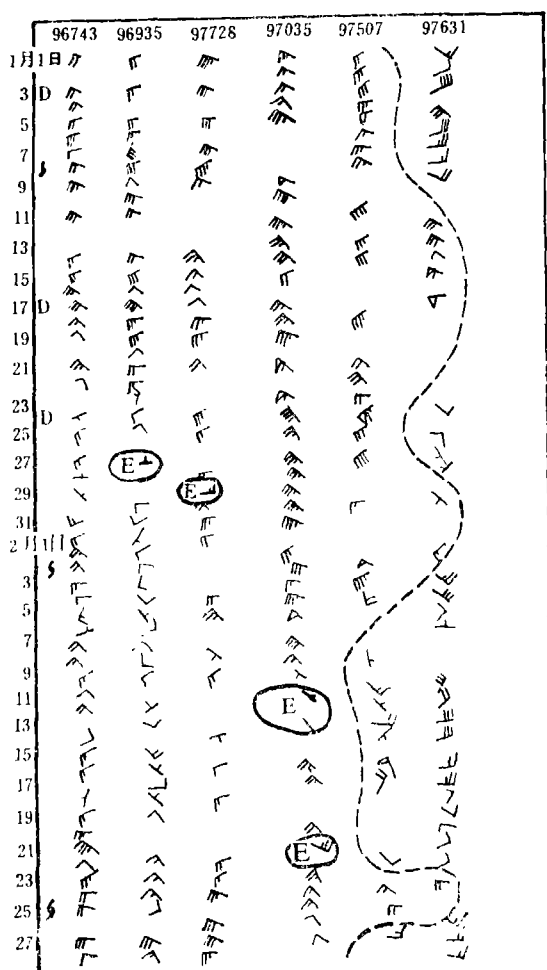 96743 96935 97728 97035 97507 97631
1月1日
3 D
5
7
9
11
13
15
17 D
19
21
23 D
25
27 E
29 E
31
2月1日
3
5
7
9
11 E
13
15
17
19
21 E
23
25
27